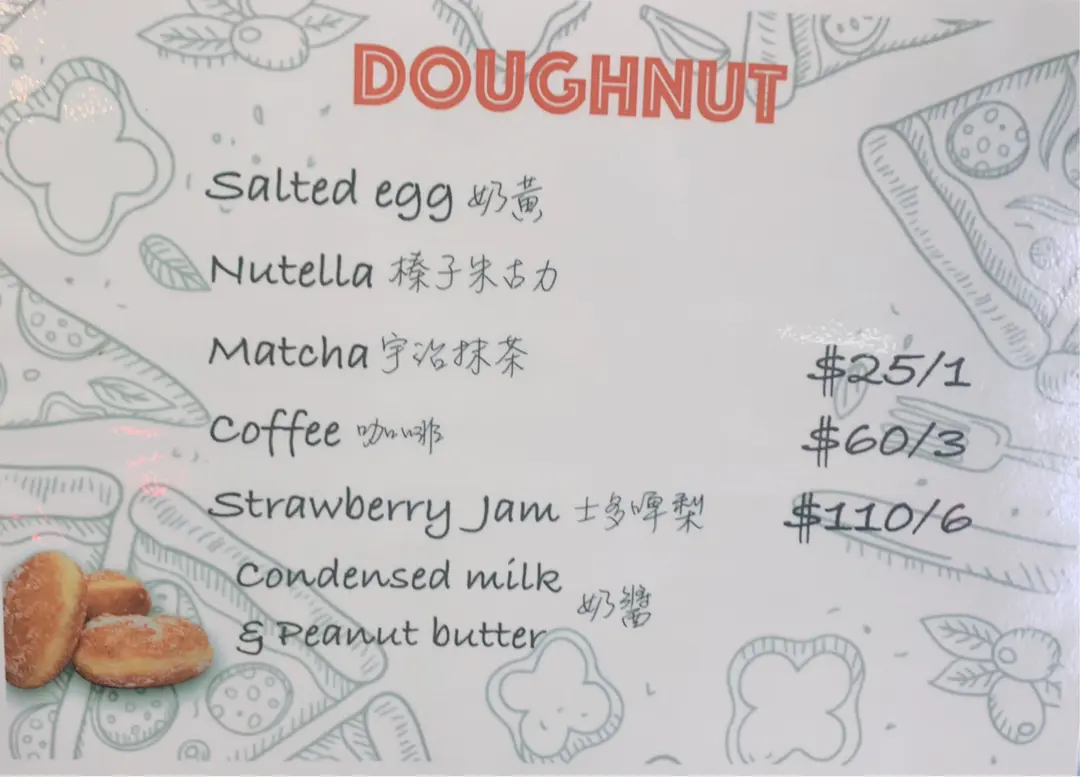 DOUGHNUT
Salted egg 奶黃
Nutella 榛子朱古力
Matcha 宇治抹茶
$25/1
Coffee 咖啡
$60/3
Strawberry Jam 士多啤梨
$110/6
Condensed milk
& Peanut butter
奶醬